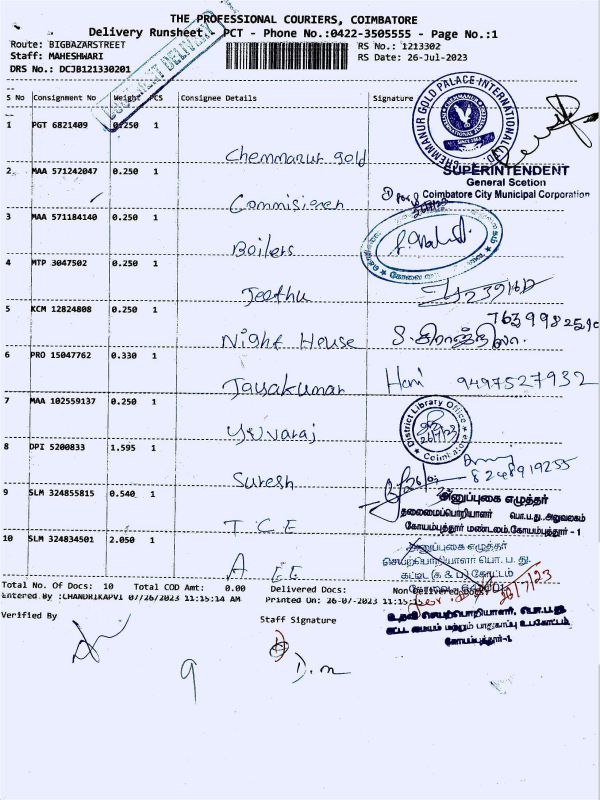 THE PROFESSIONAL COURIERS, COIMBATORE
Delivery Runsheet. PCT - Phone No.:0422-3505555 - Page No.:1
Route: BIGBAZARSTREET RS No.: 1213302
Staff: MAHESHWARI RS Date: 26-Jul-2023
DRS No.: DCJB121330201
DOCUMENT DELIVERY
S No Consignment No Weight PCS Consignee Details Signature
CHEMMANUR GOLD PALACE INTERNATIONAL LTD.
1 PGT 6821409 0.250 1 Chemmanur gold
SUPERINTENDENT
General Scetion
Coimbatore City Municipal Corporation
2 MAA 571242047 0.250 1 Commisioner
3 MAA 571184140 0.250 1 Boilers
4 MTP 3047502 0.250 1 Jeethu
5 KCM 12824808 0.250 1 Night House
6 PRO 15047762 0.330 1 Jayakumar 9497527932
7 MAA 102559137 0.250 1 Yuvaraj
District Library Office Coimbatore
8 DPI 5200833 1.595 1 Suresh 8248919255
9 SLM 324855815 0.540 1 T C E
அனுப்புகை எழுத்தர்
தலைமைப்பொறியாளர் பொ.ப.து.அலுவலகம்
கோயம்புத்தூர் மண்டலம்,கோயம்புத்தூர் - 1
10 SLM 324834501 2.050 1 A EE
அனுப்புகை எழுத்தர்
செயற்பொறியாளர் பொ. ப. து
கட்டட (க & ப) கோட்டம்
Total No. Of Docs: 10 Total COD Amt: 0.00 Delivered Docs: Non Delivered Docs:
Entered By :CHANDRIKAPVI 07/26/2023 11:15:14 AM Printed On: 26-07-2023 11:15:
26/7/23
உதவி செயற்பொறியாளர், பொ.ப.து
கோயம்புத்தூர்-1
Verified By Staff Signature
9 D.m